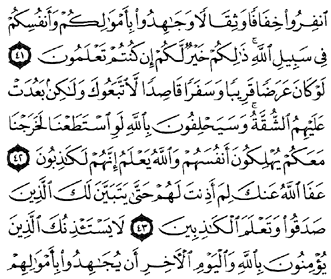 ٱنفِرُوا۟ خِفَافًا وَثِقَالًا وَجَٰهِدُوا۟ بِأَمْوَٰلِكُمْ وَأَنفُسِكُمْ
فِى سَبِيلِ ٱللَّهِ ۚ ذَٰلِكُمْ خَيْرٌ لَّكُمْ إِن كُنتُمْ تَعْلَمُونَ ٤١
لَوْ كَانَ عَرَضًا قَرِيبًا وَسَفَرًا قَاصِدًا لَّٱتَّبَعُوكَ وَلَٰكِنۢ بَعُدَتْ
عَلَيْهِمُ ٱلشُّقَّةُ ۚ وَسَيَحْلِفُونَ بِٱللَّهِ لَوِ ٱسْتَطَعْنَا لَخَرَجْنَا
مَعَكُمْ يُهْلِكُونَ أَنفُسَهُمْ وَٱللَّهُ يَعْلَمُ إِنَّهُمْ لَكَٰذِبُونَ ٤٢
عَفَا ٱللَّهُ عَنكَ لِمَ أَذِنتَ لَهُمْ حَتَّىٰ يَتَبَيَّنَ لَكَ ٱلَّذِينَ
صَدَقُوا۟ وَتَعْلَمَ ٱلْكَٰذِبِينَ ٤٣ لَا يَسْتَـْٔذِنُكَ ٱلَّذِينَ
يُؤْمِنُونَ بِٱللَّهِ وَٱلْيَوْمِ ٱلْءَاخِرِ أَن يُجَٰهِدُوا۟ بِأَمْوَٰلِهِمْ